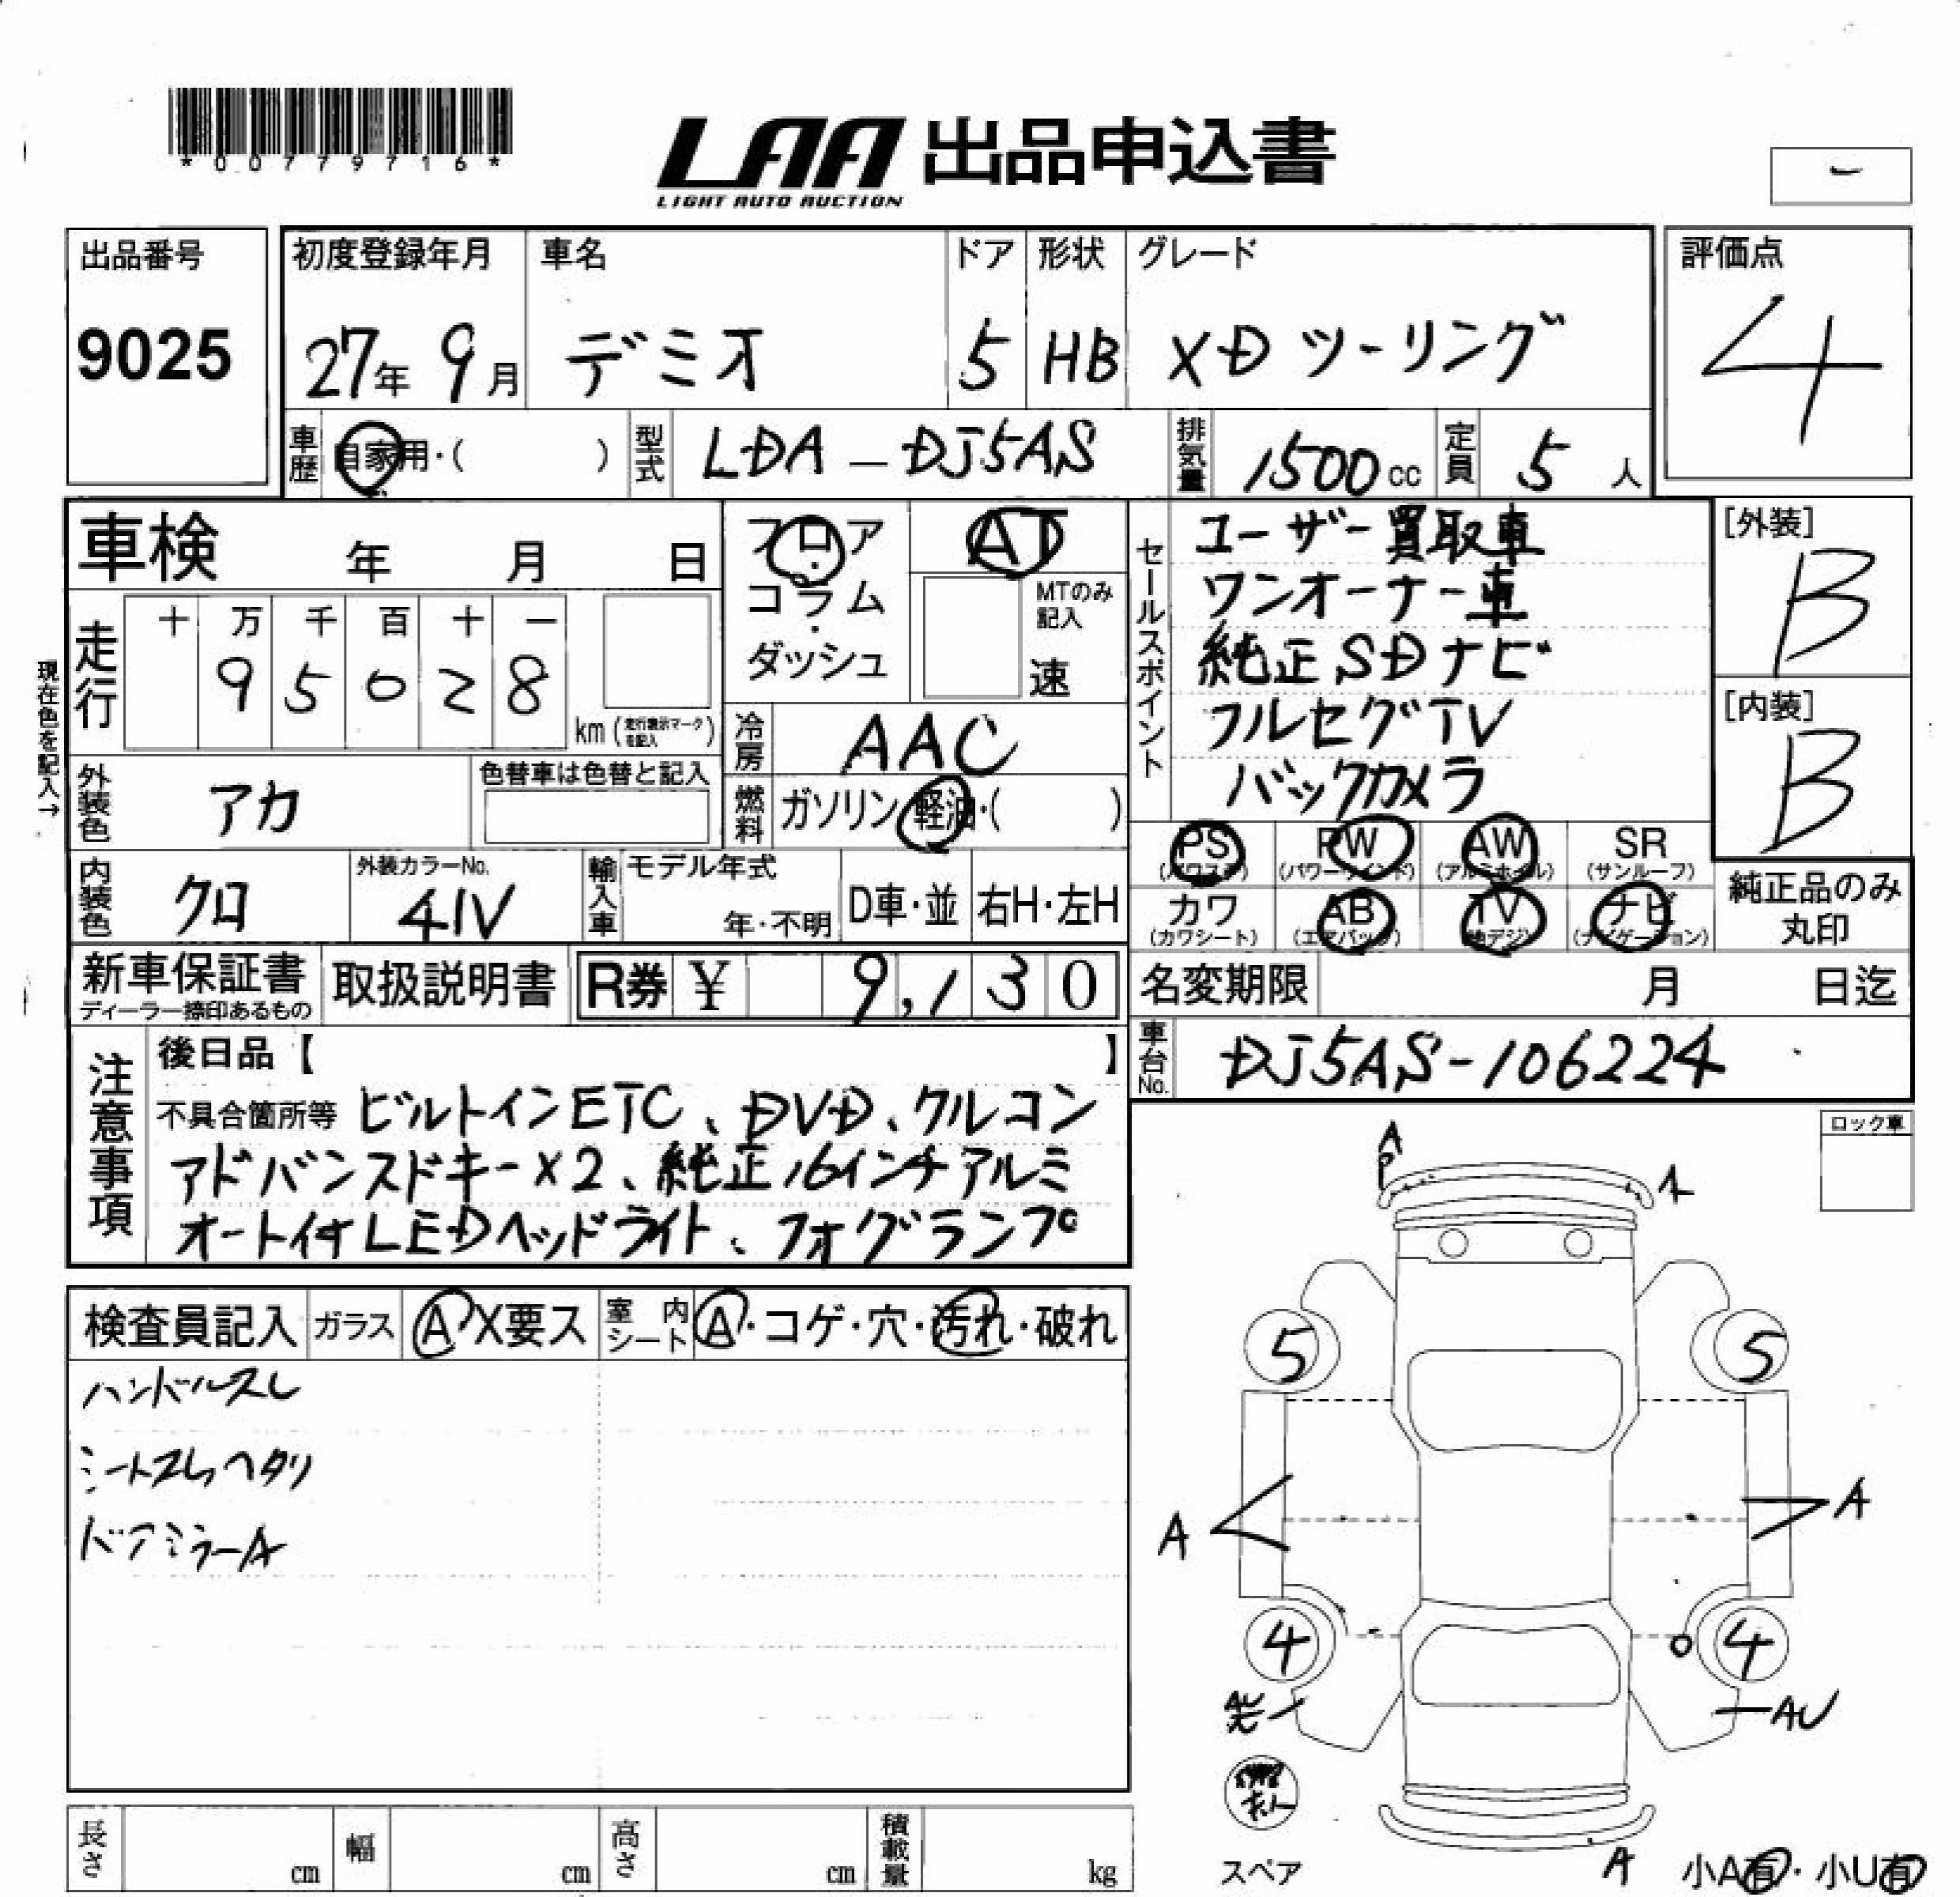 *00779716*
LAA 出品申込書
LIGHT AUTO AUCTION
-
出品番号
9025
初度登録年月
27年 9月
車名
デミオ
ドア
5
形状
HB
グレード
XD ツーリング
評価点
4
車歴 自家用・( )
型式 LDA - DJ5AS
排気量 1500cc
定員 5 人
車検 年 月 日
フロア・コラム・ダッシュ
AT
MTのみ記入
速
セールスポイント
ユーザー買取車
ワンオーナー車
純正SDナビ
フルセグTV
バックカメラ
[外装]
B
[内装]
B
現在色を記入→
走行 十 万 千 百 十 一
9 5 0 2 8
km (走行表示マークを記入)
冷房 AAC
外装色 アカ
色替車は色替と記入
燃料 ガソリン・軽油・( )
PS (パワステ)
PW (パワーウインド)
AW (アルミホイル)
SR (サンルーフ)
カワ (カワシート)
AB (エアバック)
TV (地デジ)
ナビ (ナビゲーション)
純正品のみ丸印
内装色 クロ
外装カラーNo.
41V
輸入車 モデル年式
年・不明
D車・並
右H・左H
新車保証書
ディーラー捺印あるもの
取扱説明書
R券 ¥ 9,130
名変期限 月 日迄
車台No. DJ5AS-106224
注意事項
後日品【 】
不具合箇所等 ビルトインETC、DVD、クルコン
アドバンスドキー×2、純正16インチアルミ
オート付LEDヘッドライト、フォグランプ
ロック車
検査員記入 ガラス A X要ス
室内シート A・コゲ・穴・汚れ・破れ
ハンドルスレ
シートスレヘタリ
ドアミラーA
A
P
A
5
5
A
A
4
4
AU
スペア
A
小A有・小U有
長さ cm
幅 cm
高さ cm
積載量 kg